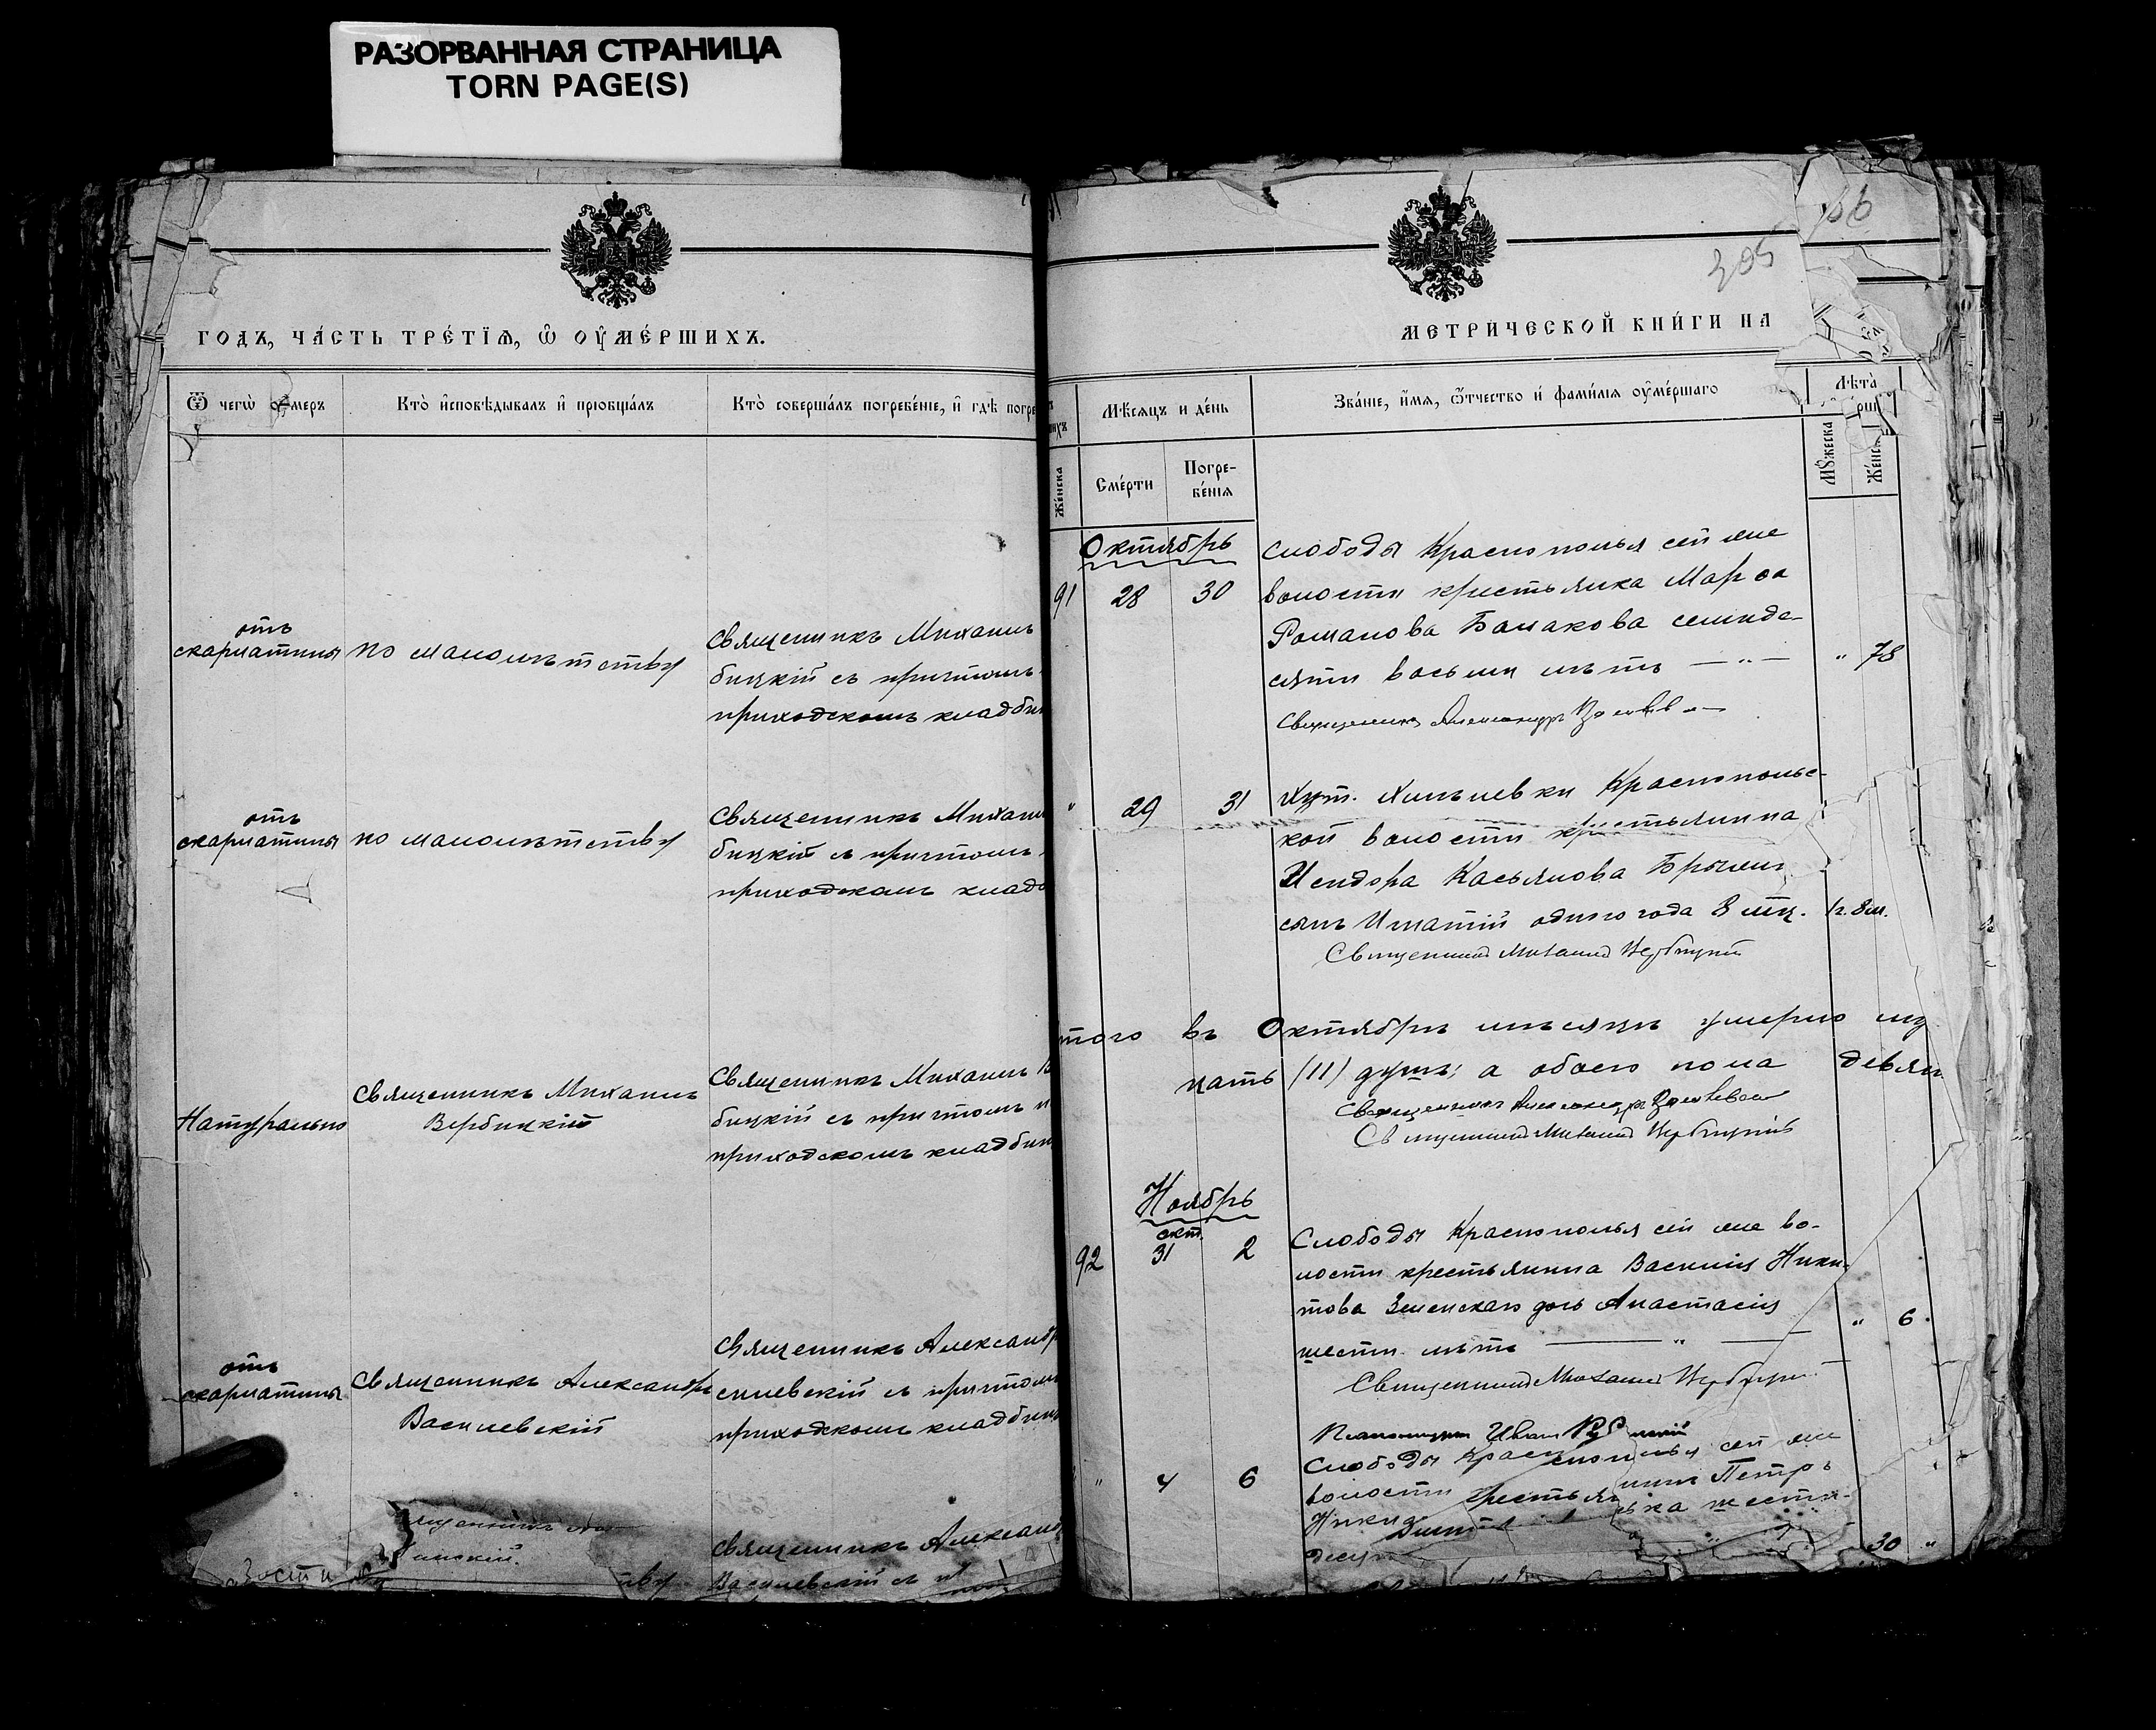 РАЗОРВАННАЯ СТРАНИЦА
TORN PAGE(S)
ГОДЪ, ЧА́СТЬ ТРЕ́ТІѦ, Ѡ҆ ОУ҆МЕ́РШИХЪ.
Ѿ чегѡ̀ ᲂу҆́меръ
Кто̀ и҆сповѣ́дывалъ и҆ прїюбща́лъ
Кто̀ соверша́лъ погребе́нїе, и҆ гдѣ̀ погре
отъ
скарлатины
по малолѣтству
Священникъ Михаилъ
бицкій съ причтомъ
приходскомъ кладби
отъ
скарлатины
по малолѣтству
Священникъ Михаи
бицкій съ причтомъ
приходскомъ кладб
Натурально
Священникъ Михаилъ
Вербицкій
Священникъ Михаилъ В
бицкій съ причтомъ н
приходскомъ кладби
отъ
скарлатины
Священникъ Александръ
Василевскій
Священникъ Александр
силевскій съ причтом
приходскомъ кладби
ству
Священникъ Алексан
Василевскій съ
305
МЕТРИ́ЧЕСКОЙ КНИ́ГИ НА
Же́нска
Мѣ́сяцъ и де́нь
Сме́рти
Погре-
бе́нїѧ
Зва́нїе, и҆́мѧ, ѻ҆́тчество и҆ фами́лїѧ ᲂу҆ме́ршагѡ
Лѣта̀
Мꙋ́жеска
Же́нск
Октябрь
91 28 30
Слободы Краснополья сей же
волости крестьянка Марѳа
Романова Балакова семиде-
сяти восьми лѣтъ — „ — „ 78
Священникъ Александръ
„ 29 31
Хут. Хильчевки Краснополь-
кой волости крестьянина
Исидора Касьянова
сынъ Игнатій одного года 8 мц. 1г. 8м.
Священникъ Михаилъ Вербицкій
того въ Октябрѣ мѣсяцѣ умерло му
цать (11) душъ; а обоего пола девят
Священникъ Александръ
Священникъ Михаилъ Вербицкій
Ноябрь
окт.
92 31 2
Слободы Краснополья сей же во-
лости крестьянина Василія Ники-
това Зеленскаго дочь Анастасія
шести лѣтъ — „ — „ 6.
Священникъ Михаилъ Вербицкій
Псаломщикъ Иванъ
„ 4 6
Слободы Краснополья сей же
волости крестьянинъ Петръ
30 „